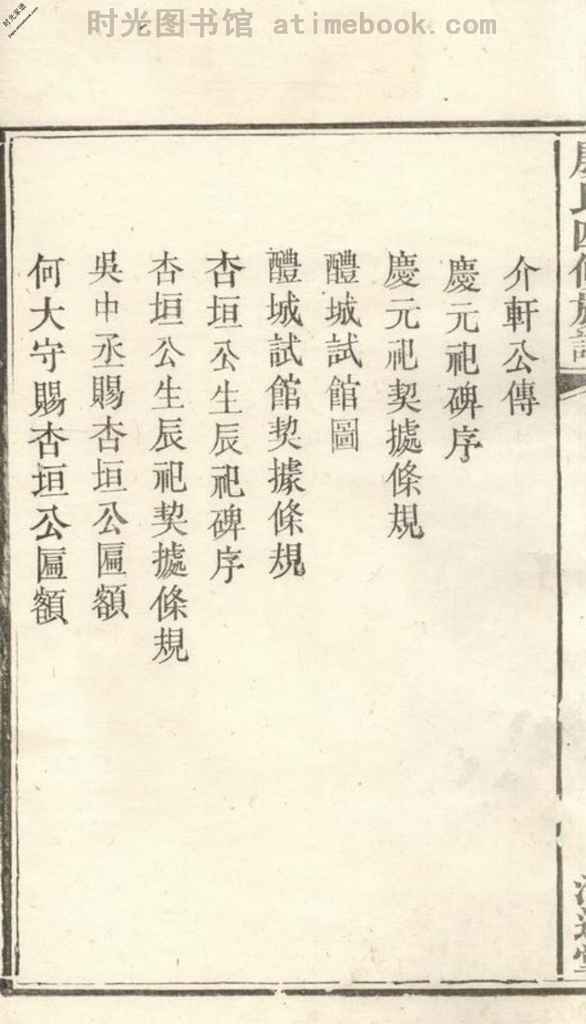 时光图书馆 atimebook.com
介軒公傳
慶元祀碑序
慶元祀契㨿條規
醴城試館圖
醴城試館契據條規
杏垣公生辰祀碑序
杏垣公生辰祀契㨿條規
吳中丞賜杏垣公匾額
何大守賜杏垣公匾額